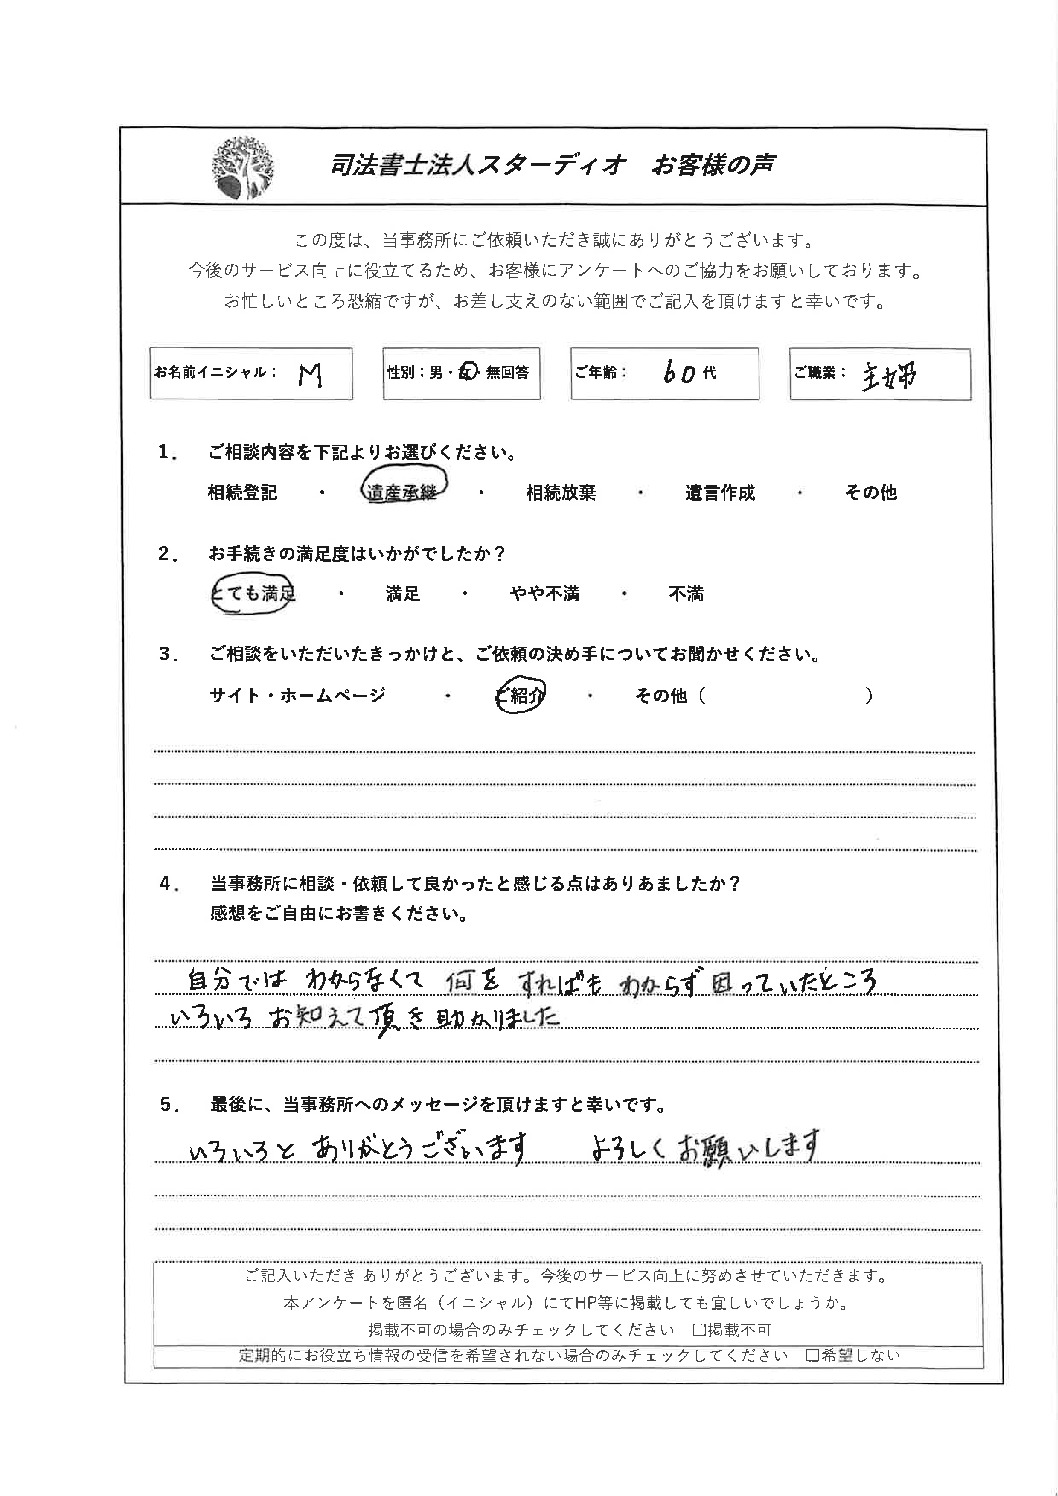 司法書士法人スターディオ　お客様の声
この度は、当事務所にご依頼いただき誠にありがとうございます。
今後のサービス向上に役立てるため、お客様にアンケートへのご協力をお願いしております。
お忙しいところ恐縮ですが、お差し支えのない範囲でご記入を頂けますと幸いです。
お名前イニシャル： M　性別：男・女・無回答　ご年齢： 60代　ご職業： 主婦
1.　ご相談内容を下記よりお選びください。
相続登記　・　遺産承継　・　相続放棄　・　遺言作成　・　その他
2.　お手続きの満足度はいかがでしたか？
とても満足　・　満足　・　やや不満　・　不満
3.　ご相談をいただいたきっかけと、ご依頼の決め手についてお聞かせください。
サイト・ホームページ　・　ご紹介　・　その他（　　　）
4.　当事務所に相談・依頼して良かったと感じる点はありあましたか？
感想をご自由にお書きください。
自分では わからなくて 何を すればも わからず 困っていたところ
いろいろ お知えて頂き 助かりました
5.　最後に、当事務所へのメッセージを頂けますと幸いです。
いろいろと ありがとうございます　よろしくお願いします
ご記入いただき ありがとうございます。今後のサービス向上に努めさせていただきます。
本アンケートを匿名（イニシャル）にてHP等に掲載しても宜しいでしょうか。
掲載不可の場合のみチェックしてください　□掲載不可
定期的にお役立ち情報の受信を希望されない場合のみチェックしてください　□希望しない